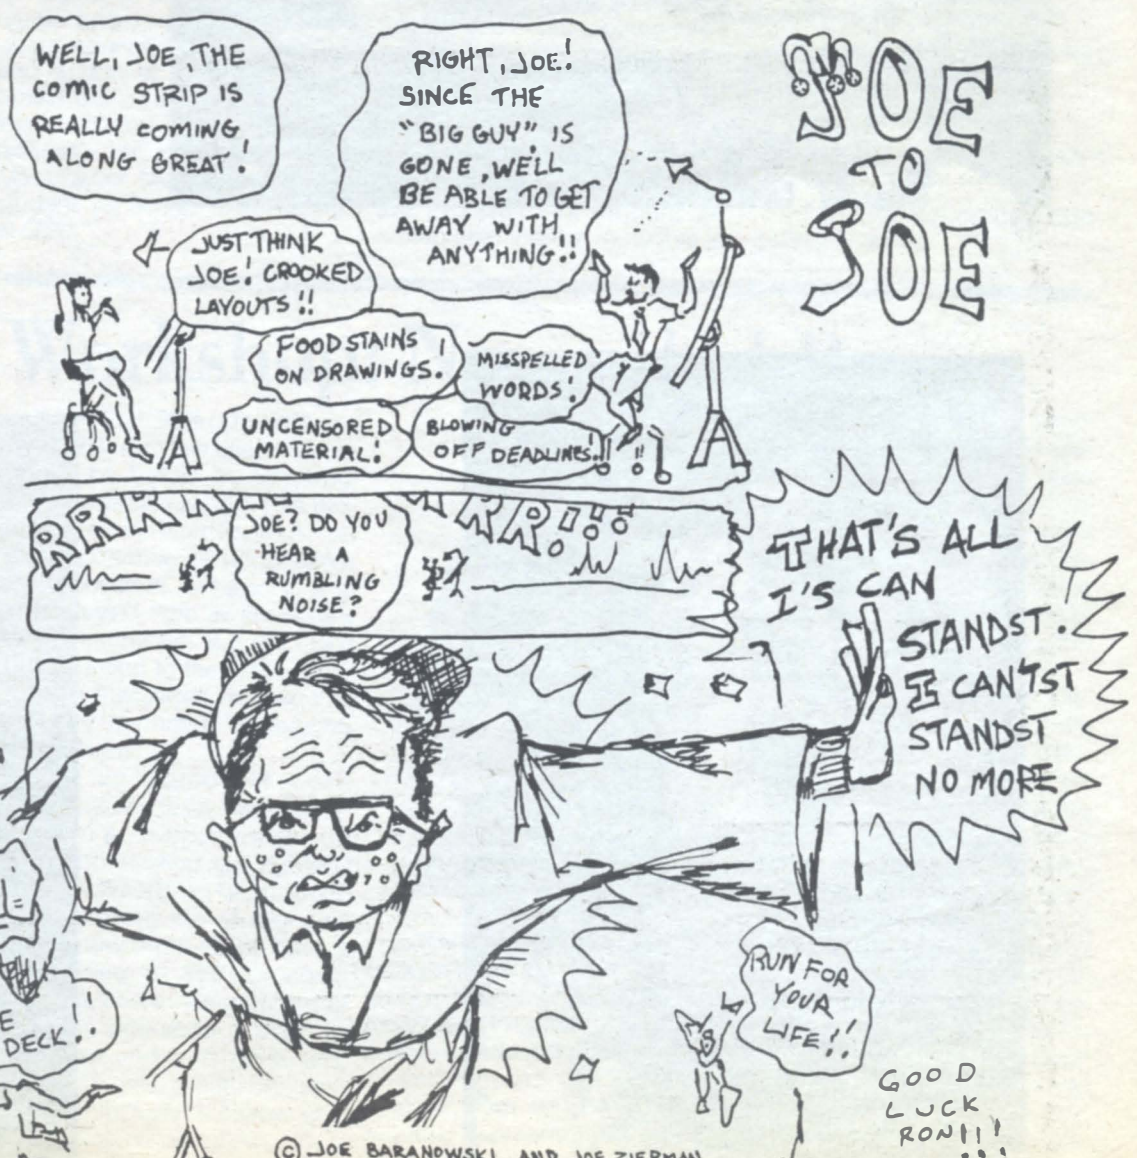 JOE
TO
JOE
WELL, JOE, THE
COMIC STRIP IS
REALLY COMING
ALONG GREAT!
RIGHT, JOE!
SINCE THE
"BIG GUY" IS
GONE, WE'LL
BE ABLE TO GET
AWAY WITH
ANYTHING!!
JUST THINK
JOE! CROOKED
LAYOUTS!!
FOOD STAINS
ON DRAWINGS!
MISSPELLED
WORDS!
UNCENSORED
MATERIAL!
BLOWING
OFF DEADLINES!!
JOE? DO YOU
HEAR A
RUMBLING
NOISE?
THAT'S ALL
I'S CAN
STANDST.
I CAN'TST
STANDST
NO MORE
DECK!!
RUN FOR
YOUR
LIFE!!
GOOD
LUCK
RON!!!
© JOE BARANOWSKI AND JOE ZIERMAN